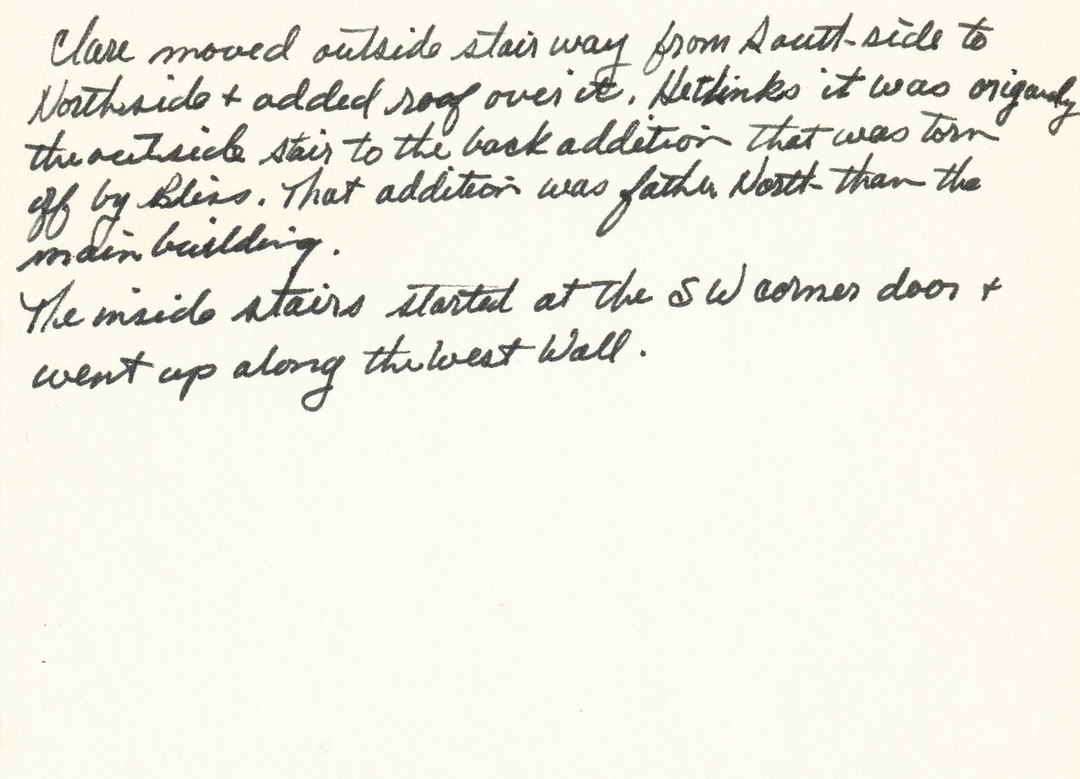 Clare moved outside stair way from South-side to
Northside + added roof over it. He thinks it was origanly
the outside stair to the back addition that was torn
off by Bliss. That addition was father North than the
main building.
The inside stairs started at the SW corner door +
went up along the West Wall.